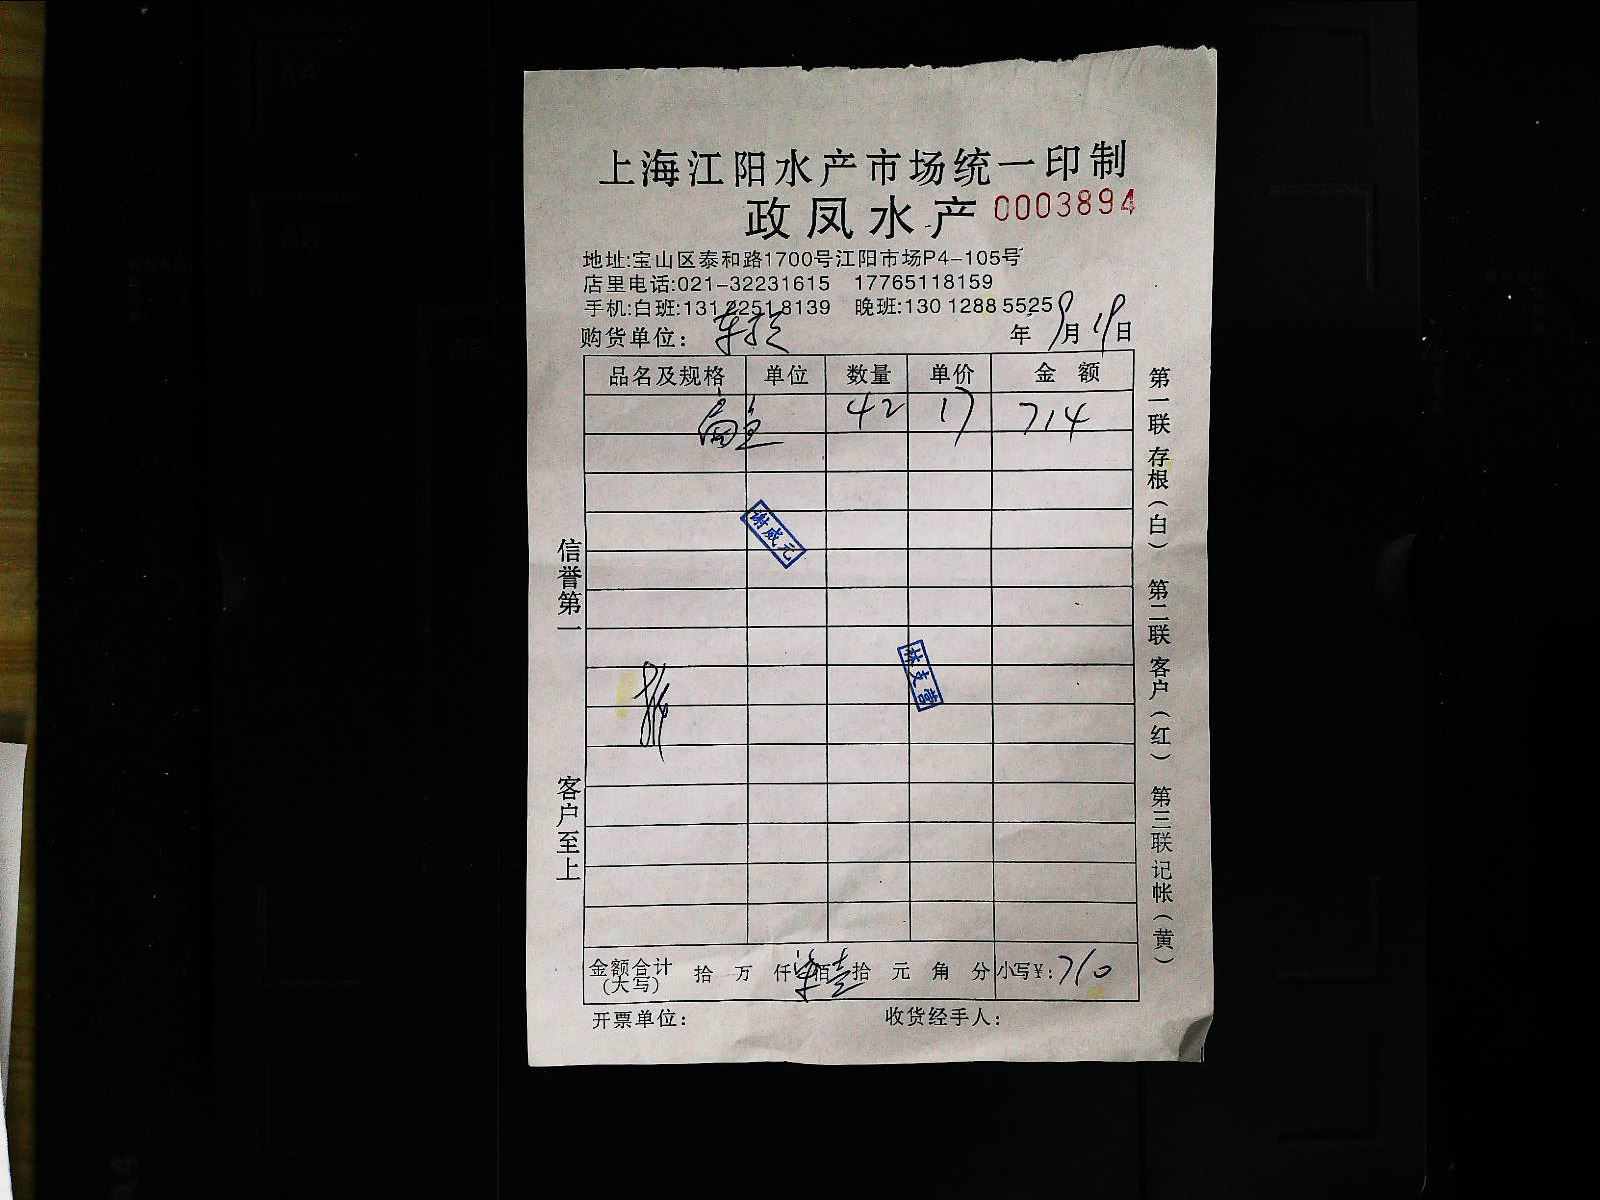 上海江阳水产市场统一印制
政凤水产 0003894
地址:宝山区泰和路1700号江阳市场P4-105号
店里电话:021-32231615 17765118159
手机:白班:131 2251 8139 晚班:130 1288 5525
购货单位: 年 9月 19日
品名及规格 单位 数量 单价 金 额
42 17 714
谢威元
金额合计 拾 万 仟 柒佰壹拾 元 角 分 小写¥:710
(大写)
开票单位: 收货经手人:
信誉第一
客户至上
第一联 存根(白) 第二联 客户(红) 第三联 记帐(黄)